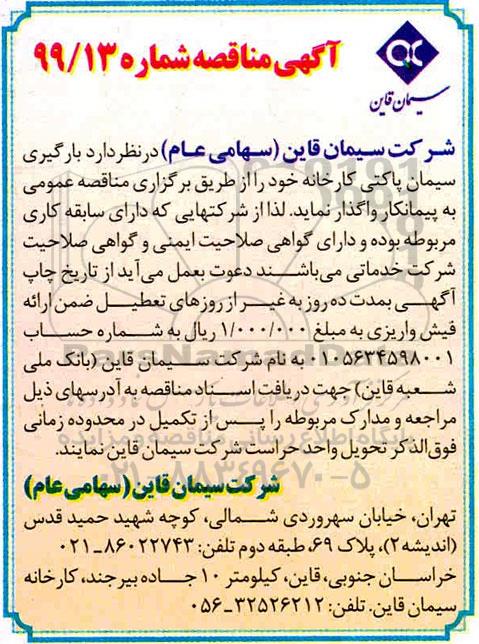 آگهی مناقصه شماره ۹۹/۱۳
سیمان قاین
شرکت سیمان قاین (سهامی عام) درنظر دارد بارگیری
سیمان پاکتی کارخانه خود را از طریق برگزاری مناقصه عمومی
به پیمانکار واگذار نماید. لذا از شرکتهایی که دارای سابقه کاری
مربوطه بوده و دارای گواهی صلاحیت ایمنی و گواهی صلاحیت
شرکت خدماتی می‌باشند دعوت بعمل می‌آید از تاریخ چاپ
آگهی بمدت ده روز به غیر از روزهای تعطیل ضمن ارائه
فیش واریزی به مبلغ ۱/۰۰۰/۰۰۰ ریال به شماره حساب
۰۱۰۵۶۳۴۵۹۸۰۰۱ به نام شرکت سیمان قاین (بانک ملی
شعبه قاین) جهت دریافت اسناد مناقصه به آدرسهای ذیل
مراجعه و مدارک مربوطه را پس از تکمیل در محدوده زمانی
فوق‌الذکر تحویل واحد حراست شرکت سیمان قاین نمایند.
۰۲۱-۸۸۳۴۹۶۷۰-۵
شرکت سیمان قاین (سهامی عام)
تهران، خیابان سهروردی شمالی، کوچه شهید حمید قدس
(اندیشه۲)، پلاک ۶۹، طبقه دوم تلفن: ۸۶۰۲۲۷۴۳-۰۲۱
خراسان جنوبی، قاین، کیلومتر ۱۰ جاده بیرجند، کارخانه
سیمان قاین. تلفن: ۳۲۵۲۶۲۱۲-۰۵۶